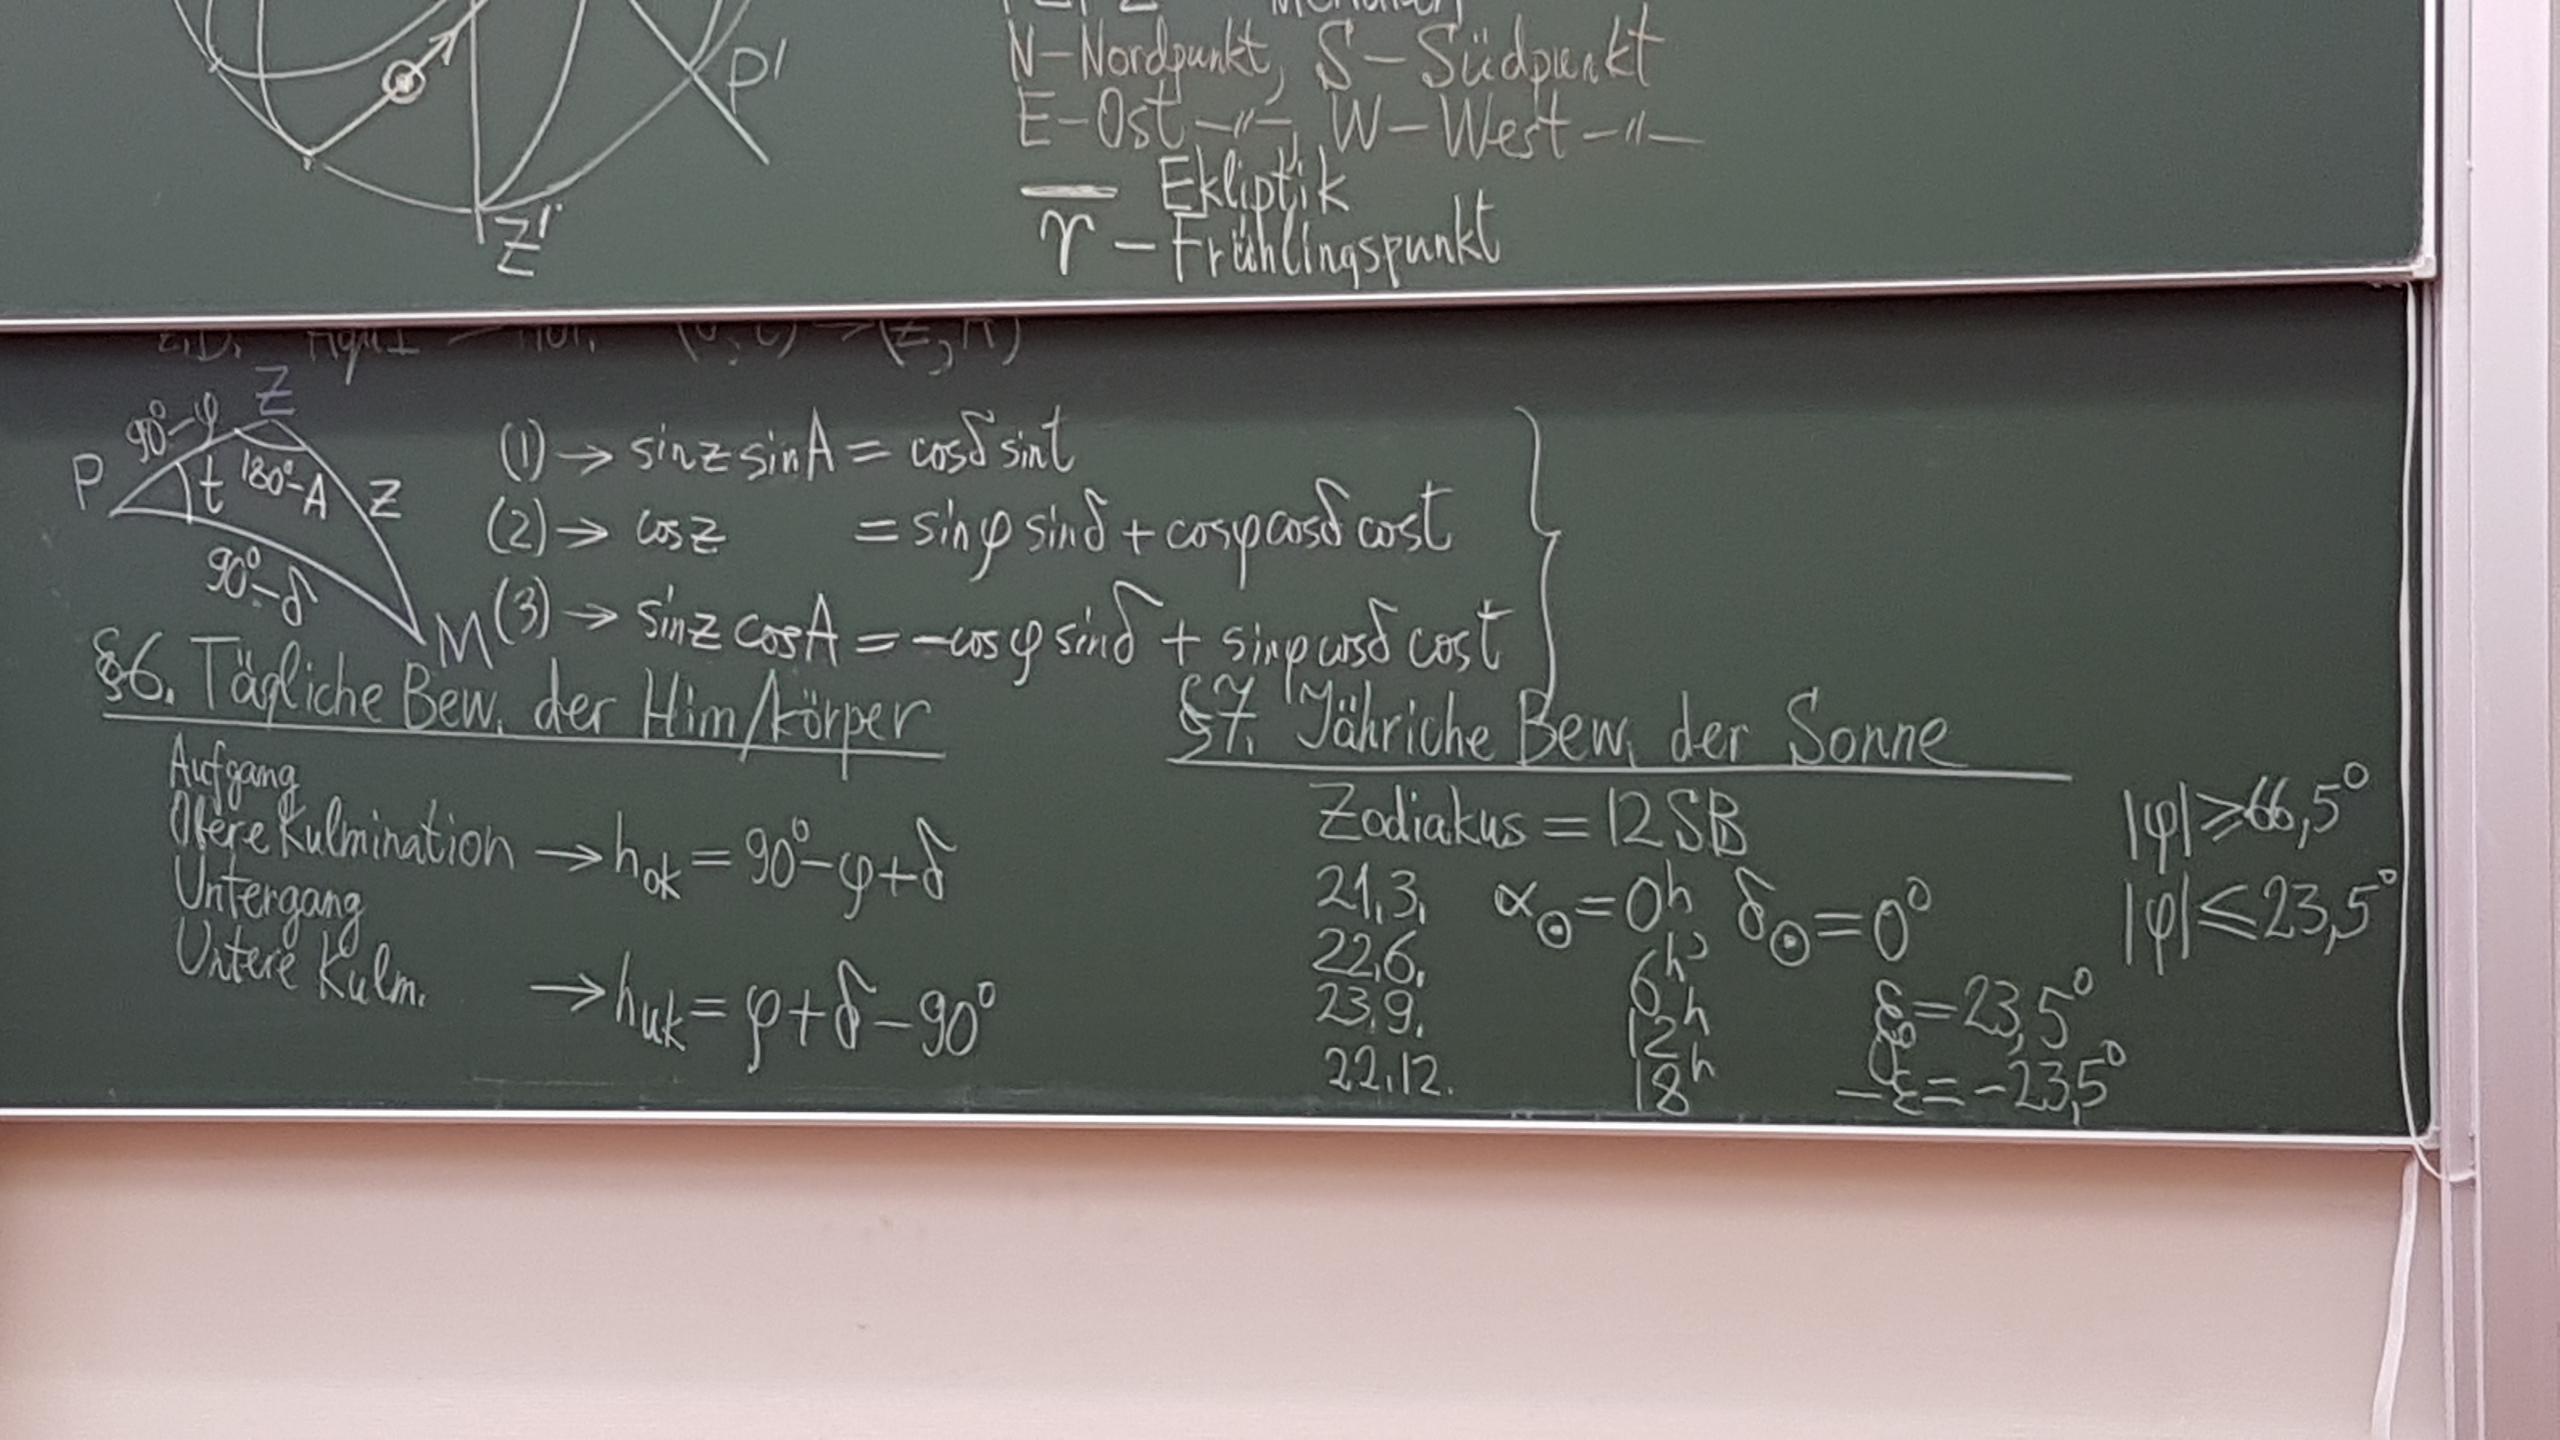 P'
Z'
N – Nordpunkt, S – Südpunkt
E – Ost –〃–, W – West –〃–
— Ekliptik
♈ – Frühlingspunkt
(z, A)
Z
90°–φ
P t 180°–A z
90°–δ
M
(1) → sin z sin A = cos δ sin t
(2) → cos z = sin φ sin δ + cos φ cos δ cos t
(3) → sin z cos A = –cos φ sin δ + sin φ cos δ cos t
§6. Tägliche Bew. der Him/körper
Aufgang
Obere Kulmination → h_ok = 90° – φ + δ
Untergang
Untere Kulm. → h_uk = φ + δ – 90°
§7. Jähriche Bew. der Sonne
Zodiakus = 12 SB
21.3. α☉ = 0h δ☉ = 0°
22.6. 6h ε = 23,5°
23.9. 12h 0°
22.12. 18h –ε = –23,5°
|φ| ⩾ 66,5°
|φ| ⩽ 23,5°